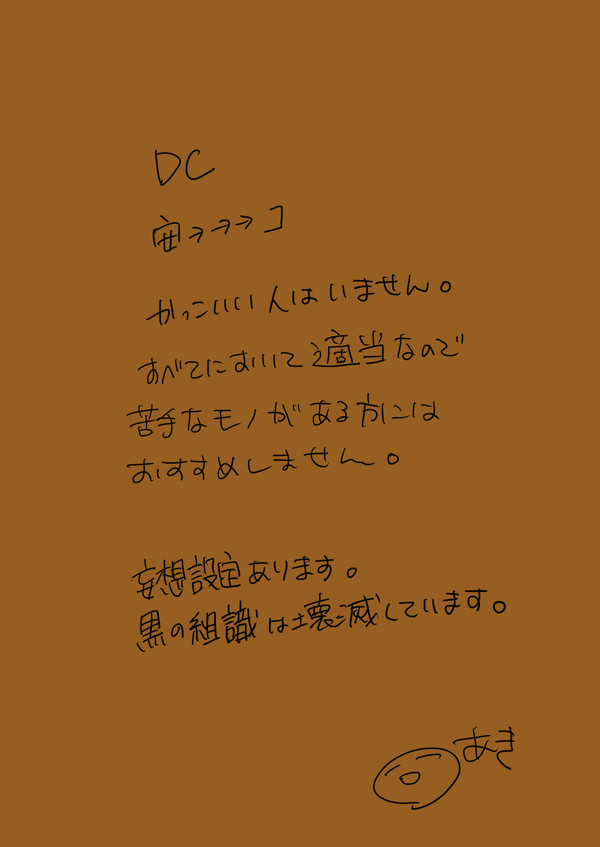 DC
安→→→コ
かっこいい人はいません。
すべてにおいて適当なので
苦手なモノがある方には
おすすめしません。
妄想設定あります。
黒の組織は壊滅しています。
あき